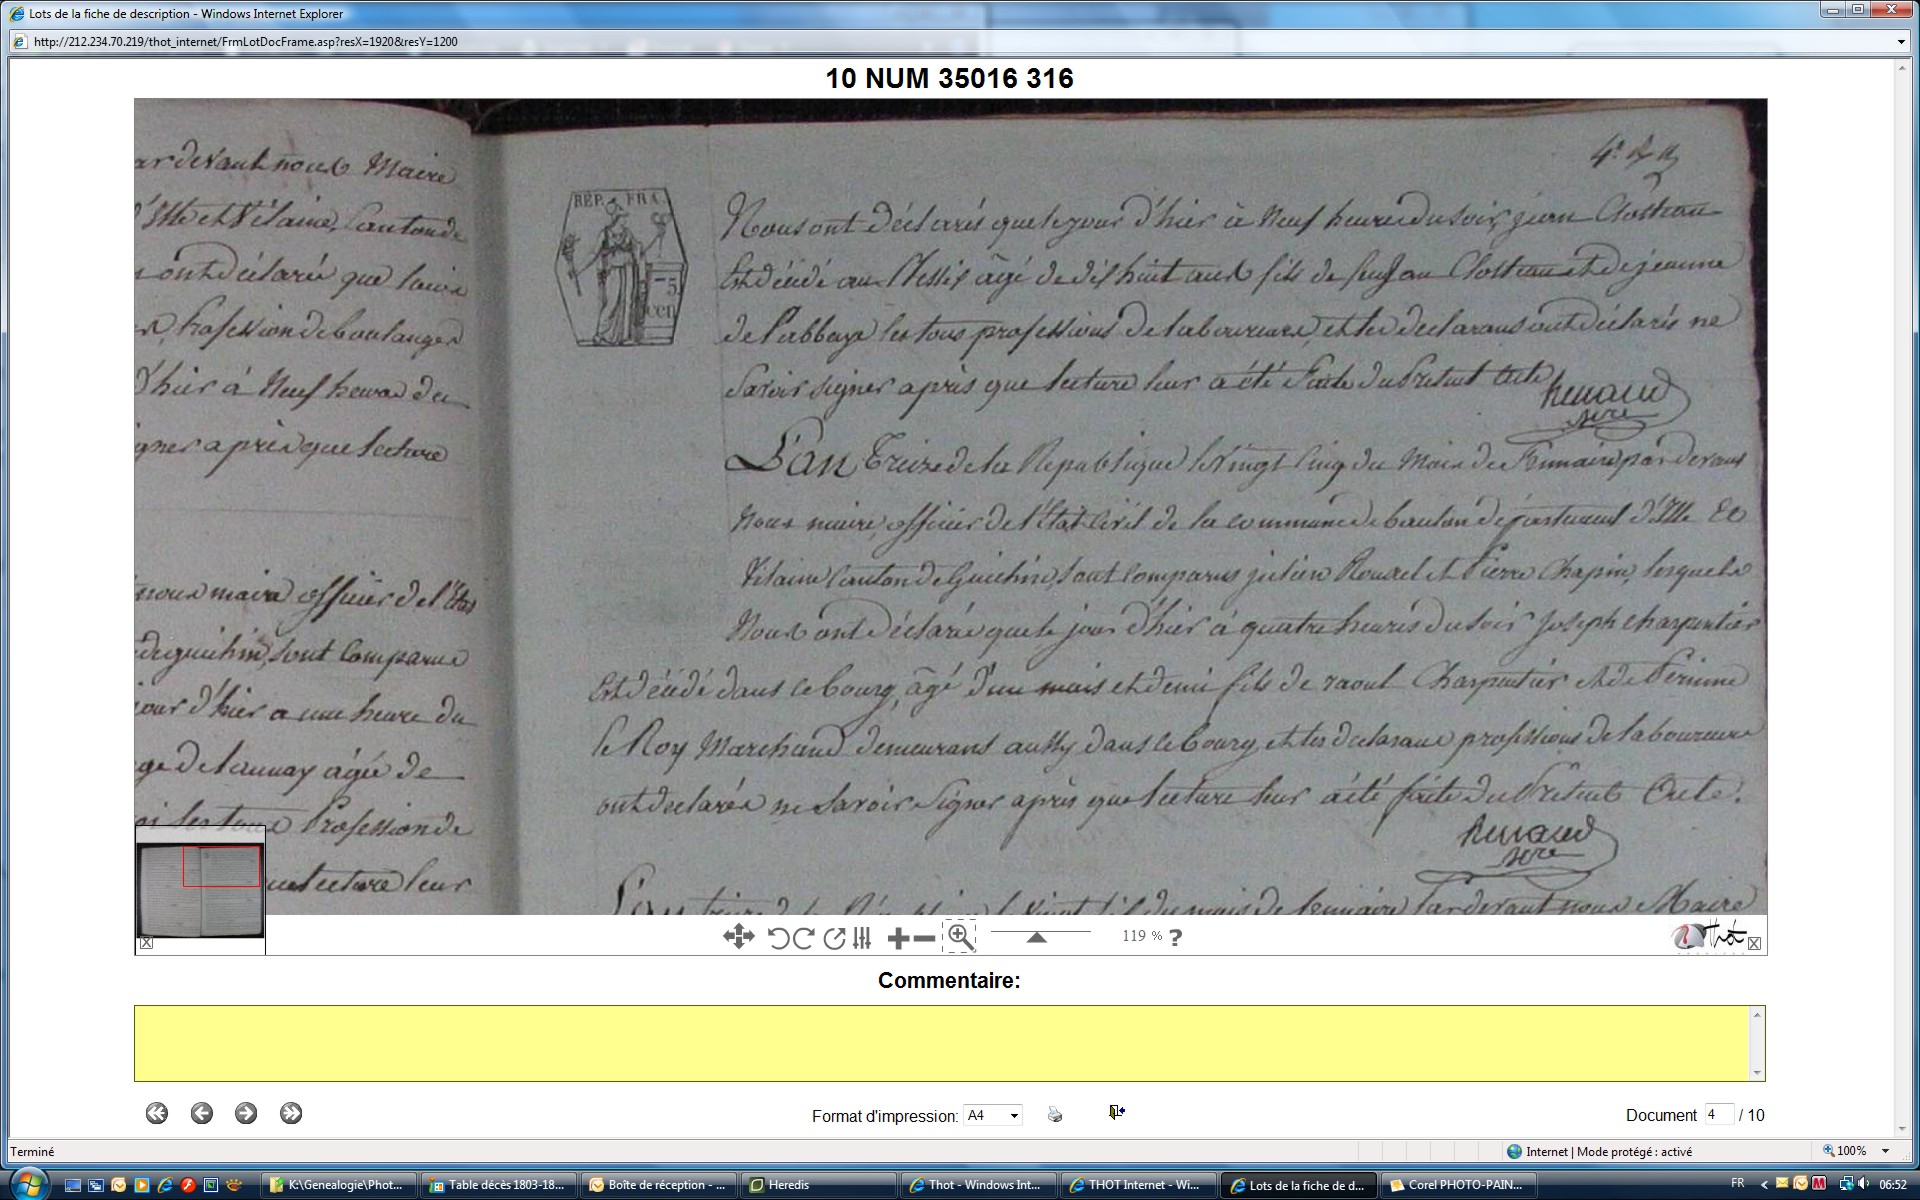 Lots de la fiche de description - Windows Internet Explorer
http://212.234.70.219/thot_internet/FrmLotDocFrame.asp?resX=1920&resY=1200
10 NUM 35016 316
ar devant nous Maire
d'Ille et Vilaine, Canton de
ont déclaré que
Profession de boulanger
d'hier à Neuf heures du
signer après que lecture
nous maire officier de l'état
de guichin, sont Comparus
jour d'hier a une heure du
ge de launay âgée de
les tous Profession de
lecture leur
4e
RÉP. FRA.
5
cen
Nous ont déclarés que le jour d'hier à Neuf heure du soir, jean Closteau
Est décédé au Plessis âgé de dix huit ans fils de feu jan Closteau et de jeanne
de l'abbaye les tous professions de laboureurs, et les declarans ont déclarés ne
Savoir signer après que lecture leur a été Faite du Present Acte
Renaud
L'an Treize de la Republique le Vingt Cinq du Mois de Frimaire par devant
Nous maire, officier de l'état Civil de la commune de bauton département d'Ille Et
Vilaine Canton de Guichin, sont Comparus julien Roussel et Pierre Chapin, lesquels
Nous ont déclaré que le jour d'hier à quatre heures du soir Joseph Charpentier
Est décédé dans le bourg, âgé d'un mois et demi fils de raoul Charpentier et de Perinne
le Roy Marchand demeurans aussy dans le bourg, et les declarans professions de laboureurs
ont declarés ne Savoir Signer après que lecture leur a été faite du Present Acte.
Renaud
L'an treize de la République le Vingt du mois de frimaire Par devant nous Maire
119 % ?
Thot
Commentaire:
Format d'impression: A4
Document 4 / 10
Terminé
Internet | Mode protégé : activé
100%
K:\Genealogie\Phot...
Table décès 1803-18...
Boîte de réception - ...
Heredis
Thot - Windows Int...
THOT Internet - Wi...
Lots de la fiche de d...
Corel PHOTO-PAIN...
FR
06:52